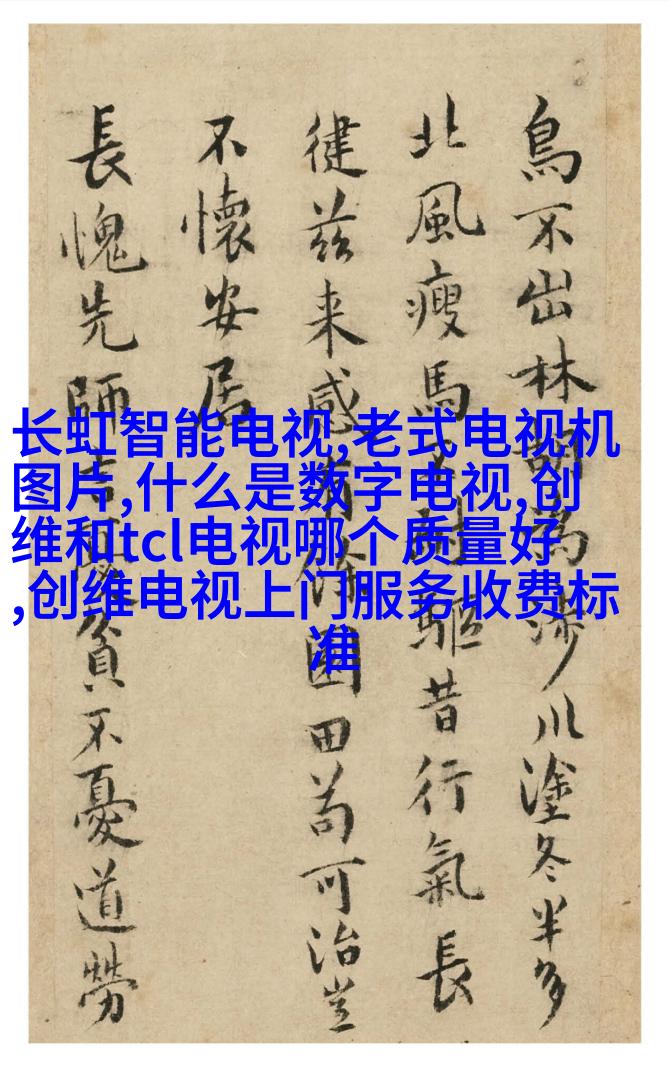 鳥不出林為涉川塗冬半多
北風瘦馬驅昔行氣長
徤茲来感餘園田苟可治豈
不懷安居
長愧先師貧不憂道勞
长虹智能电视,老式电视机
图片,什么是数字电视,创
维和tcl电视哪个质量好
,创维电视上门服务收费标
准